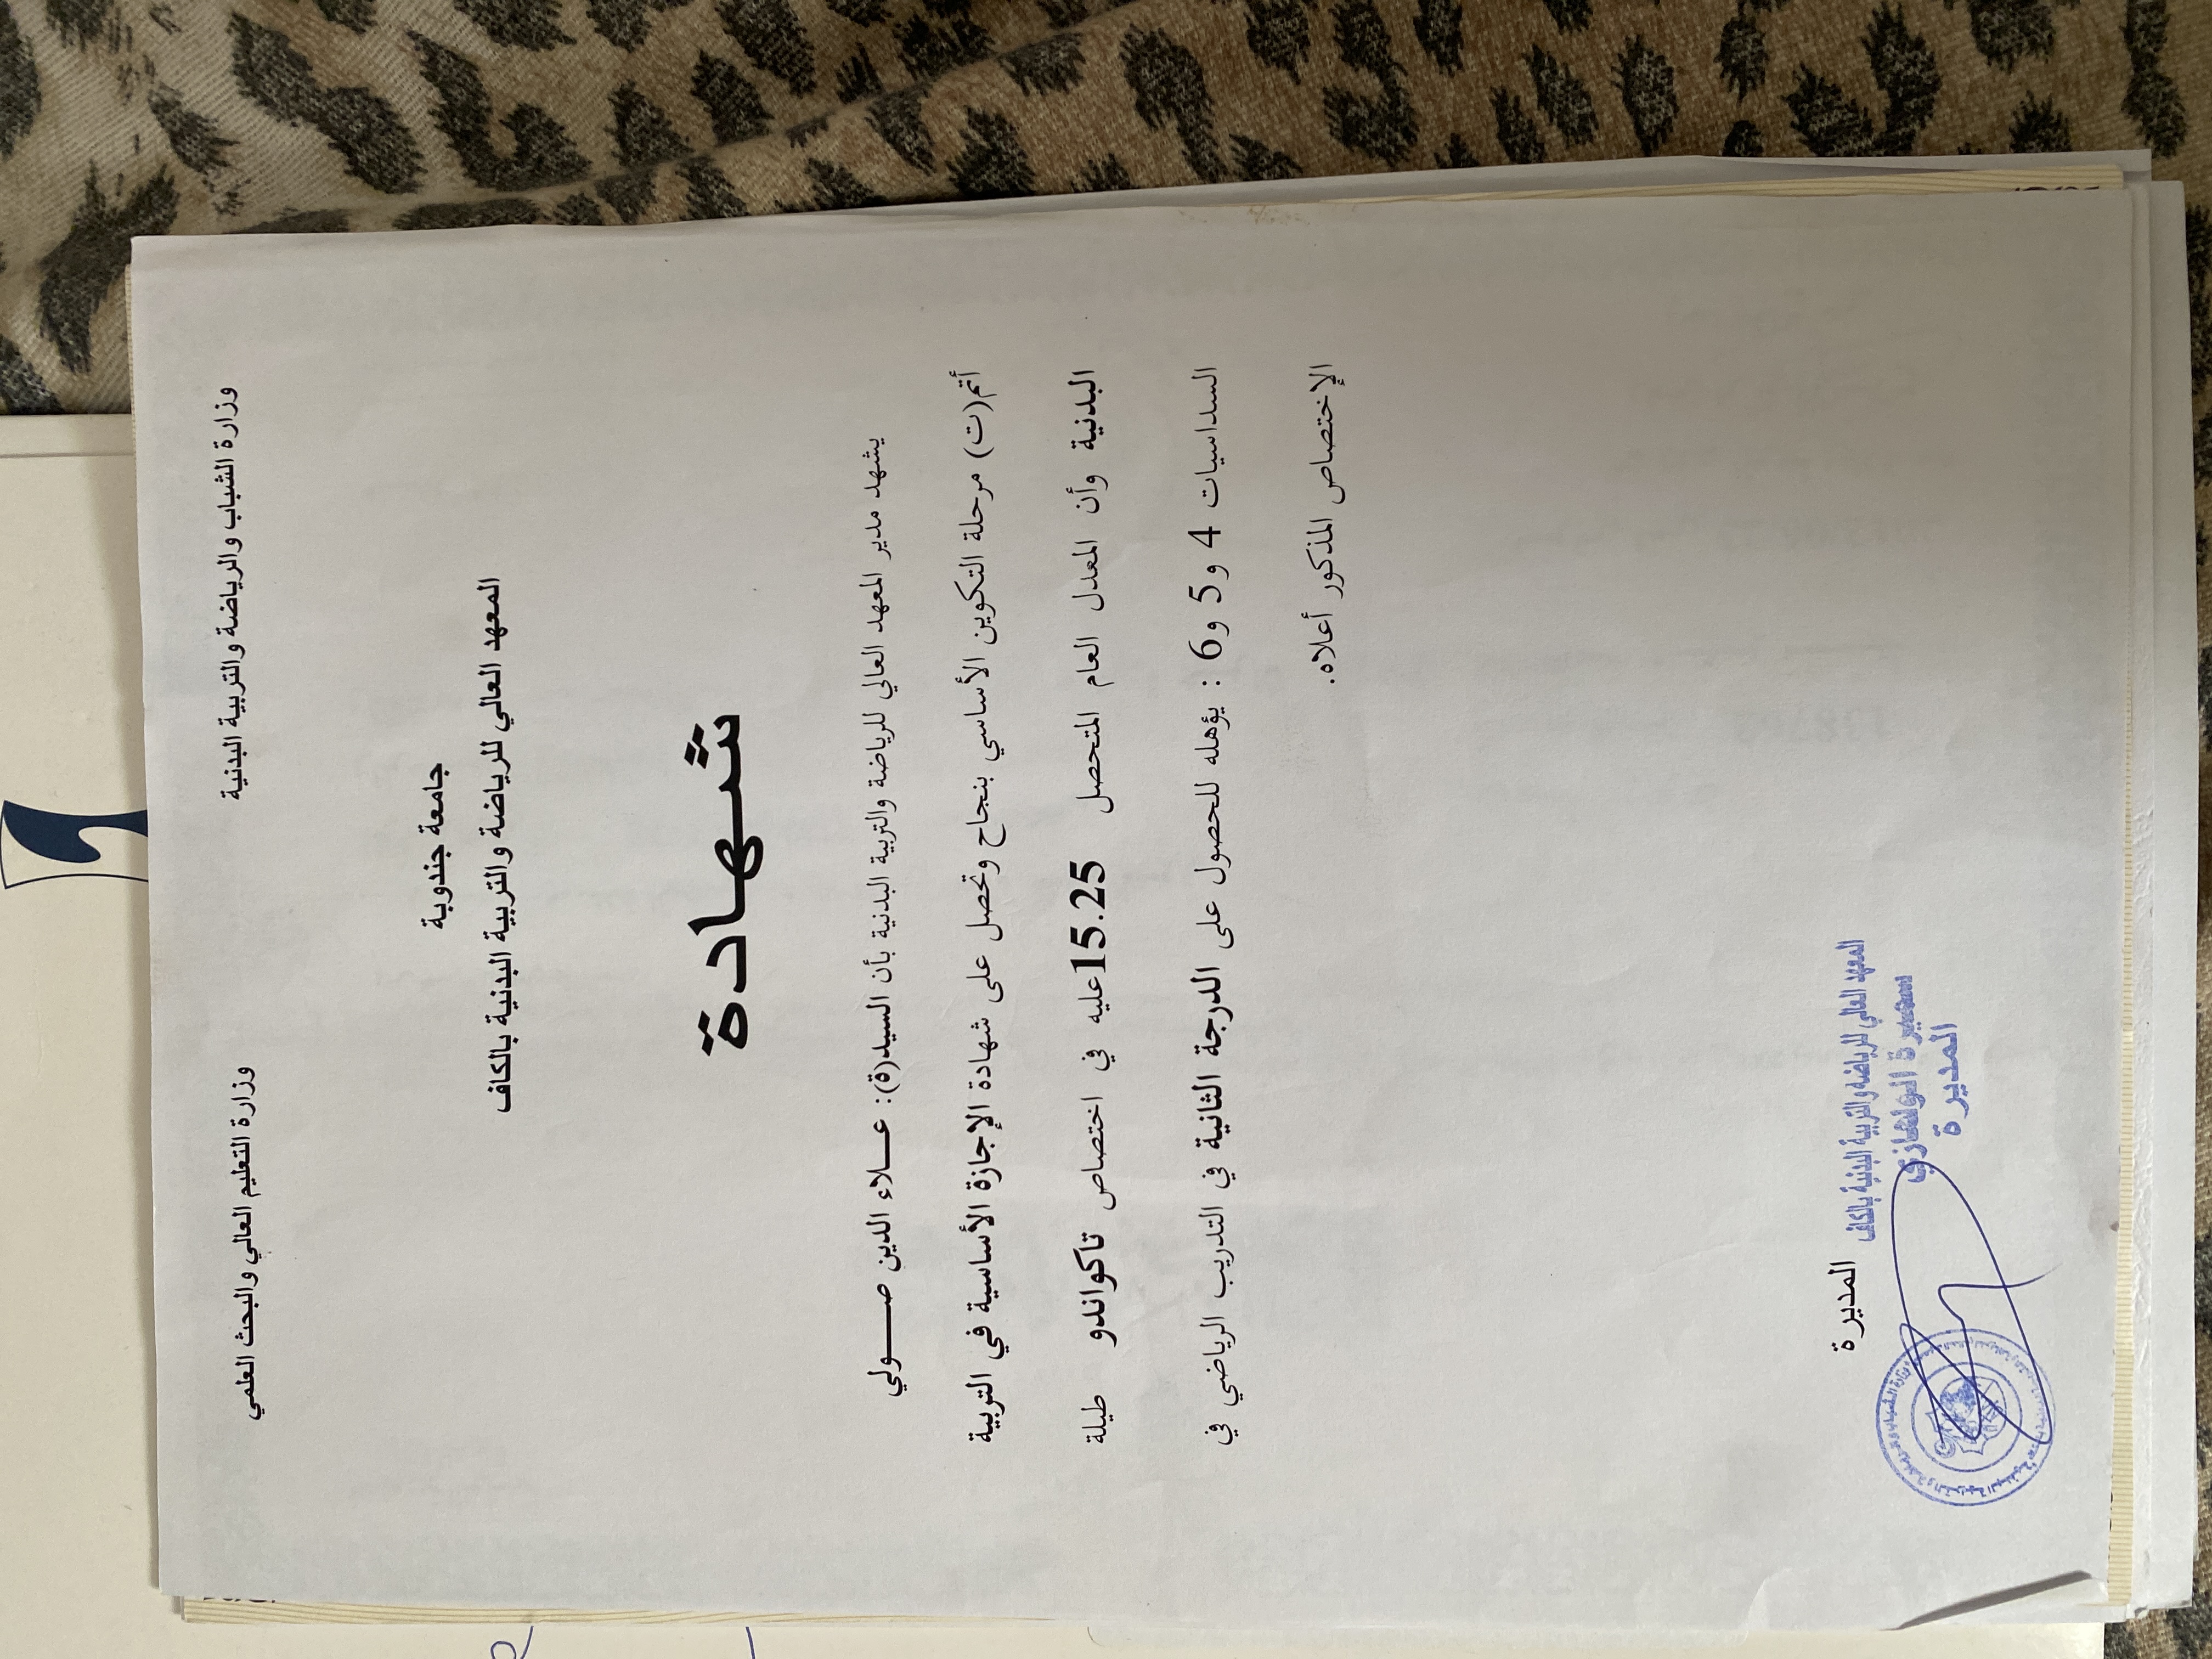 وزارة الشباب والرياضة والتربية البدنية
وزارة التعليم العالي والبحث العلمي
جامعة جندوبة
المعهد العالي للرياضة والتربية البدنية بالكاف
شهادة
يشهد مدير المعهد العالي للرياضة والتربية البدنية بأن السيد(ة): عـــلاء الدين صــــولي
أتم(ت) مرحلة التكوين الأساسي بنجاح وتحصل على شهادة الإجازة الأساسية في التربية
البدنية وأن المعدل العام المتحصل 15.25عليه في اختصاص تاكواندو طيلة
السداسيات 4 و5 و6 : يؤهله للحصول على الدرجة الثانية في التدريب الرياضي في
الإختصاص المذكور أعلاه.
المديرة
المعهد العالي للرياضة والتربية البدنية بالكاف
المديرة